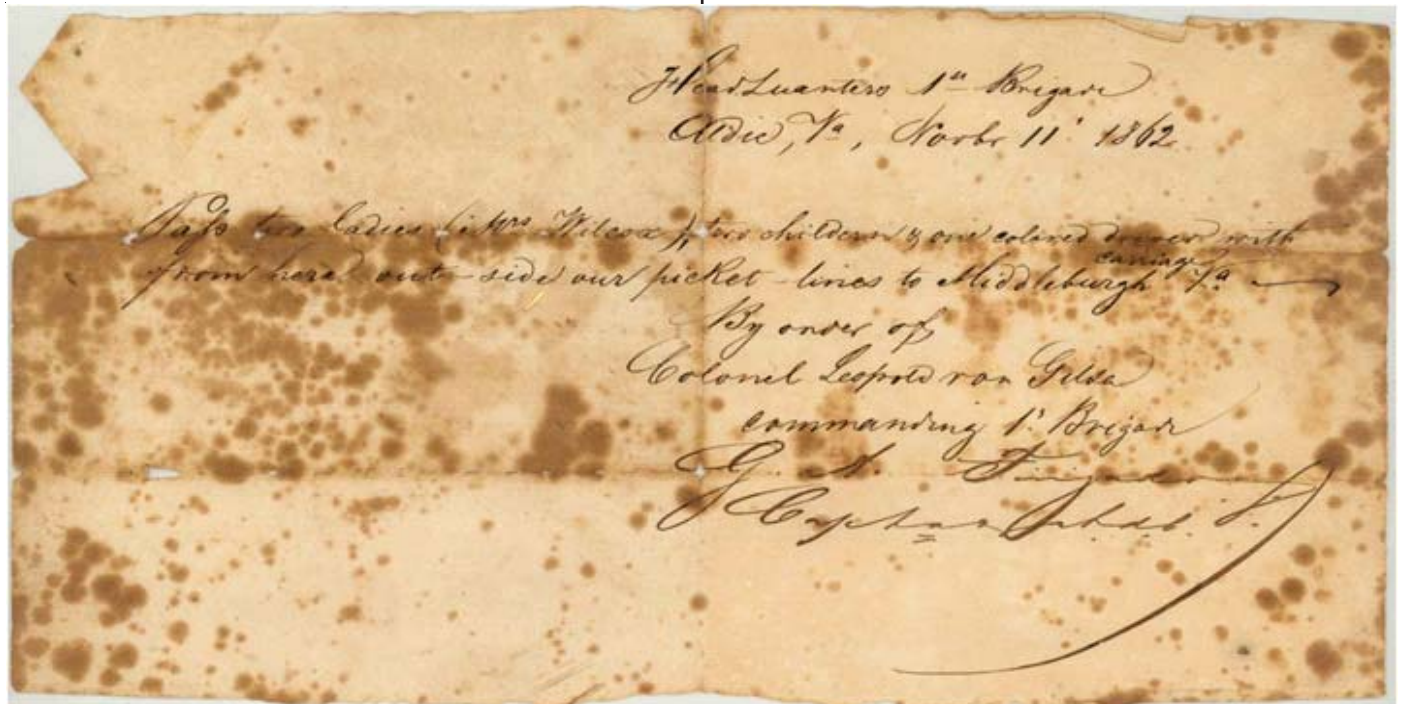 HeadQuarters 1st Brigade
Aldie, Va, Novbr 11' 1862.
Pass two ladies (Mrs Wilcox), two children & one colored driver with
carriage
from here out-side our picket-lines to Middleburgh Va
By order of
Colonel Leopold von Gilsa
commanding 1' Brigade
G. A.
Capt